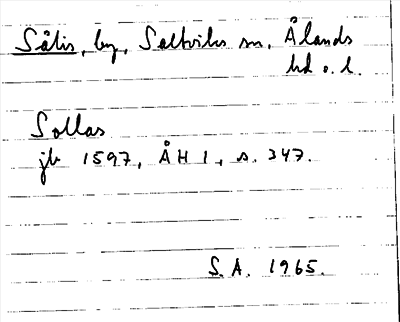 Sålis, by, Saltviks sn, Ålands
hd o. l.
Sollas
jb 1597, ÅH 1, s. 347.
S.A. 1965.